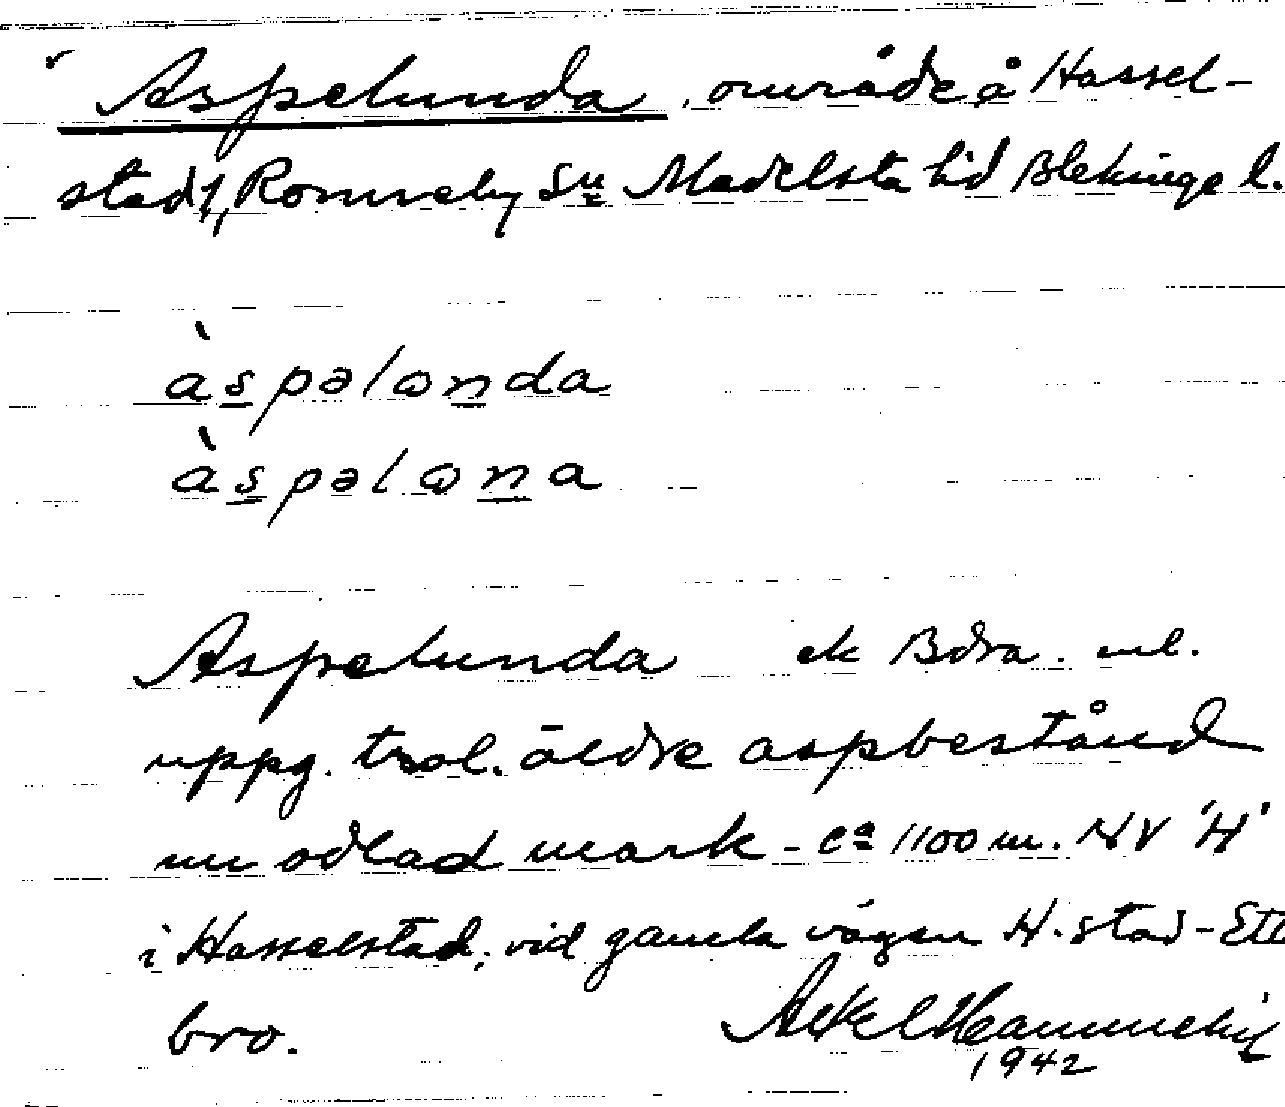 Aspelunda, område å Hassel-
stad, Ronneby Sn Medelsta hd Blekinge l.
àspəlɷnda
àspəlɷna
Aspelunda ek Bdra. enl.
uppg. trol. äldre aspbestånd
nu odlad mark - ca 1100 m. NV 'H'
i Hasselstad, vid gamla vägen H.stad-Ette
bro.
Axel
1942